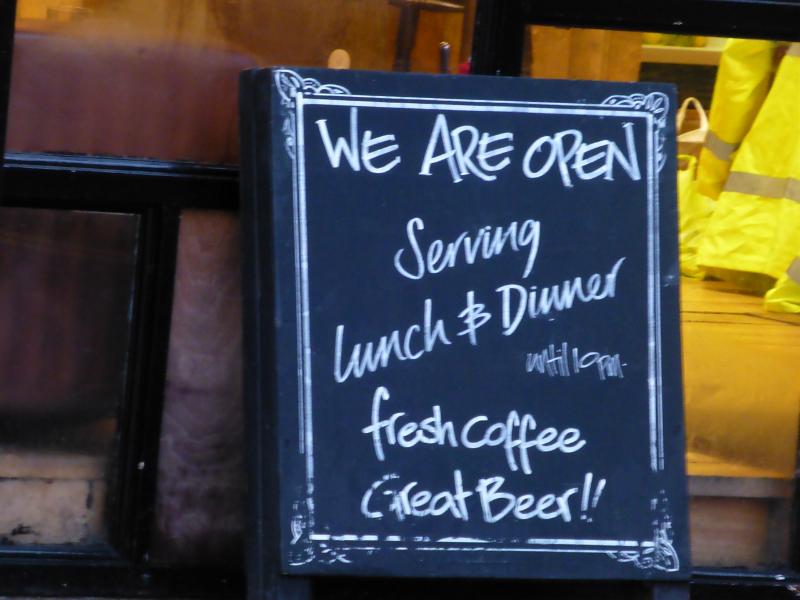 WE ARE OPEN
Serving
Lunch & Dinner
until 10pm
fresh coffee
Great Beer!!